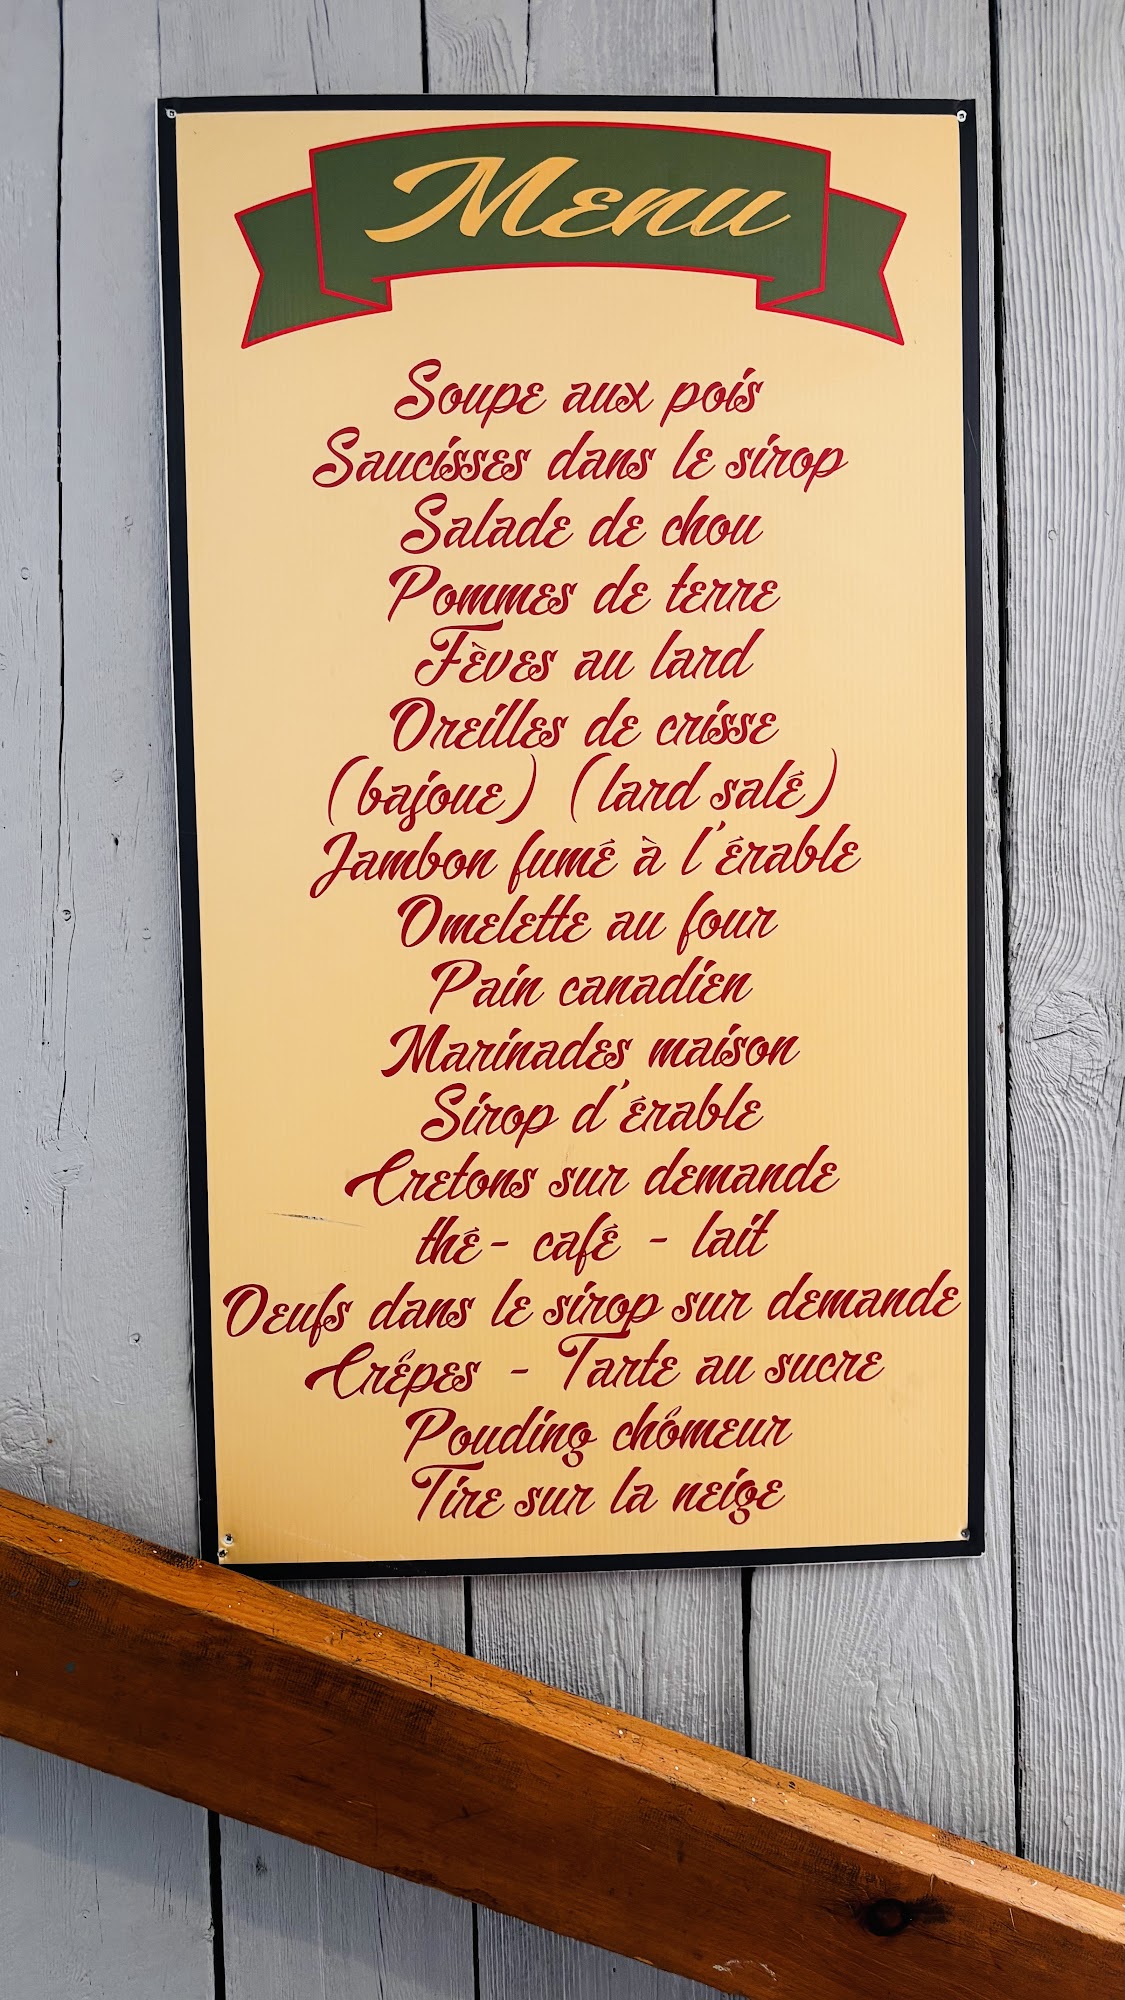 Menu
Soupe aux pois
Saucisses dans le sirop
Salade de chou
Pommes de terre
Fèves au lard
Oreilles de crisse
(bajoue) (lard salé)
Jambon fumé à l'érable
Omelette au four
Pain canadien
Marinades maison
Sirop d'érable
Cretons sur demande
thé - café - lait
Oeufs dans le sirop sur demande
Crêpes - Tarte au sucre
Pouding chômeur
Tire sur la neige